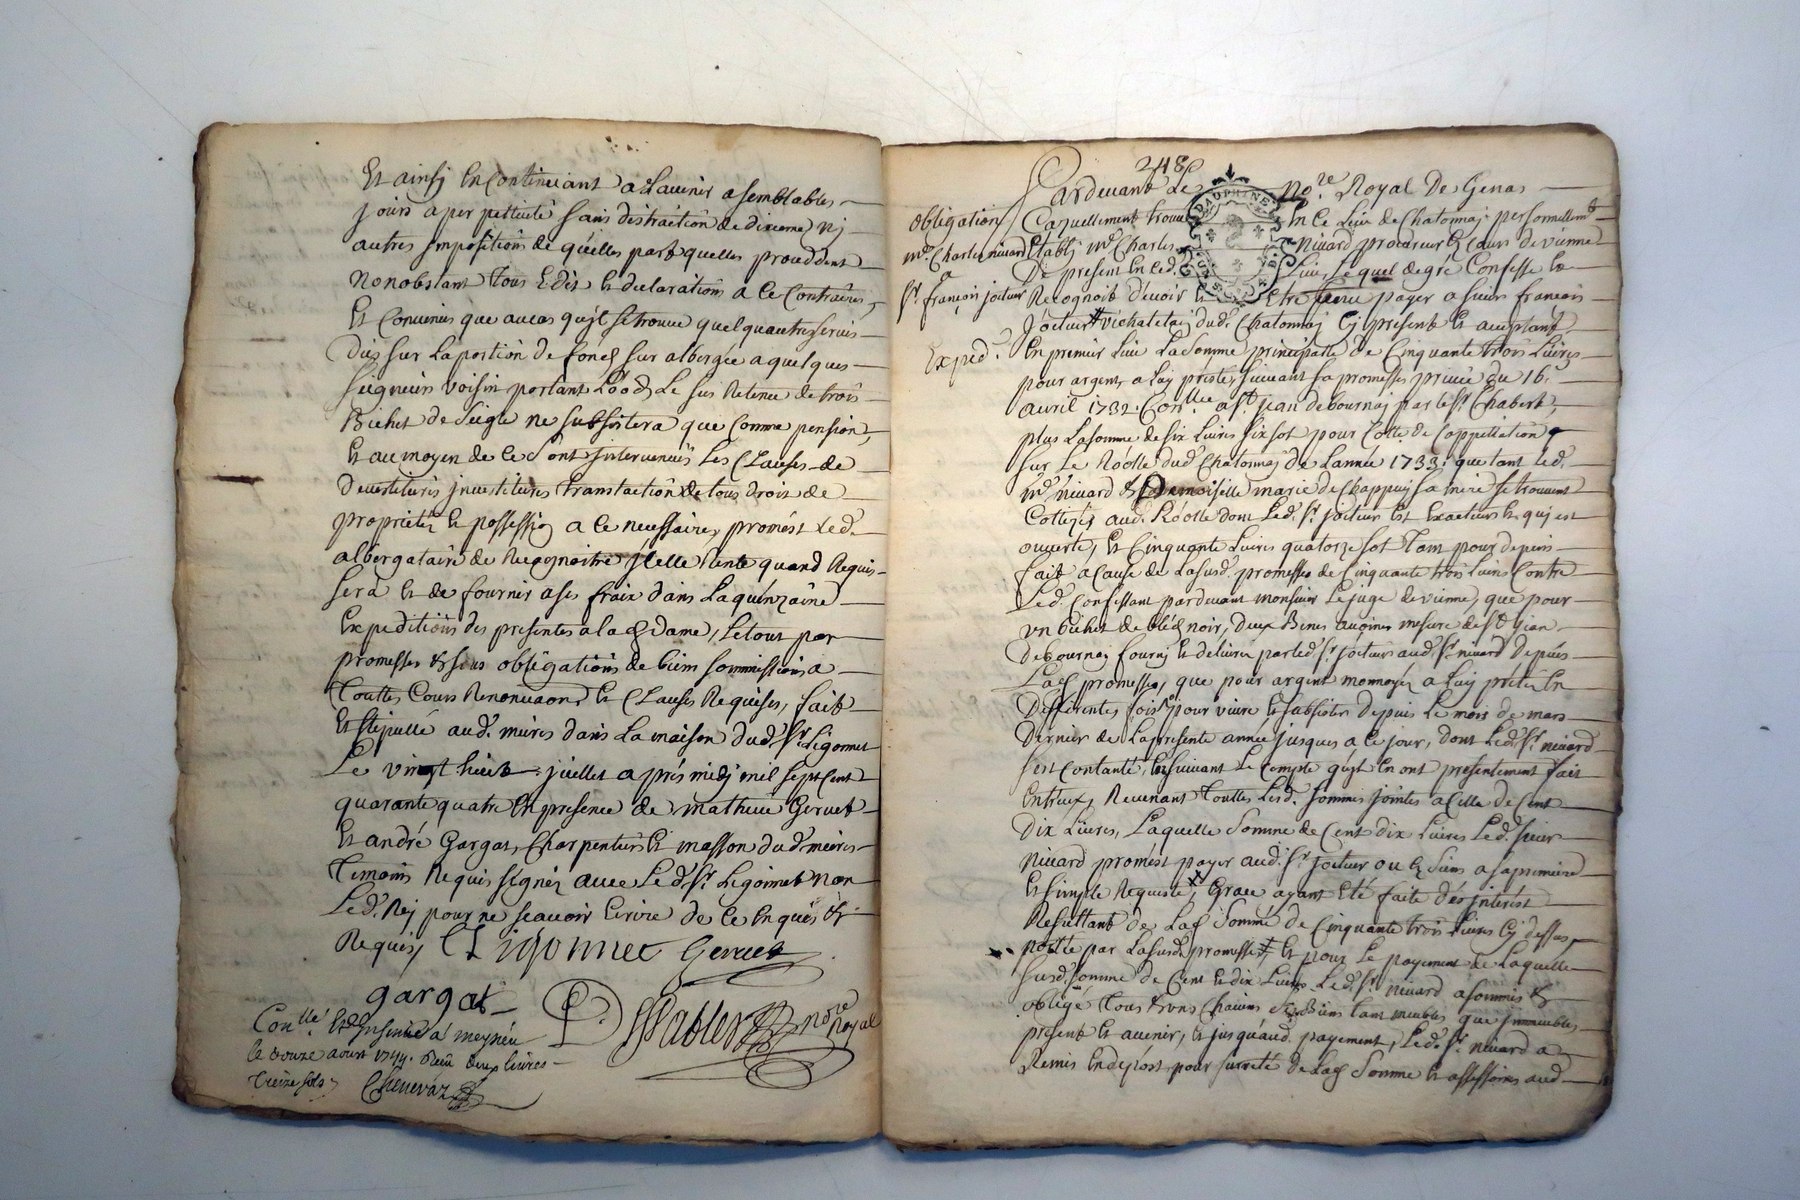 Et ainsy en Continuant a Lavenir a semblables
jours a perpettuité sans destraction de dixieme nj
autres jmpositions de quelles part quelles proceddent
nonobstant tous Edits et declarations a Ce Contraires,
Et Convenus que au cas quyl se trouve quelquautres servis
Dûs sur La portion de fond sur albergée a quelques
seigneurs voisin portant Lods, Le sus Retenu de trois
Bichet de seigle ne subsistera que Comme pension,
Et au moyen de Ce sont jntervenuës Les Clauses de
devestitures jnvestitures translaction de tous droit de
proprieté et possession a Ce necessaires, promést Led.
albergataire de Recognoitre jcelle Rente quand Requis
sera et de fournir a ses fraix dans La quinzaine
Expeditions des presentes a lad. Dame, Le tout par
promesses & sous obligations de bien sommissions a
touttes Cours Renonciaons et Clauses Requises, fait
et stipullé aud. meires dans La maison dud. Sr. Ligonnet
Le vingt huit juillet apres midj mil sept Cent
quarante quatre En presence de mathieu Gervet
Et andré Gargat, Charpentier et masson dud. meires
temoins Requis signéz avec Led. Sr. Ligonnet non
Led. Rej pour ne scavoir Ecrire de Ce Enquis &
Requis,
Ligonnet Gervet
gargat
Pablet nore Royal
Conllé et Insinué a meyzieu
le douze aoust 1744. Reçu deux livres
treize sols
Chenevaz
248
Pardevant Le nore. Royal De Genas
DAUPHINE
obligation
Casuellement trouvé En Ce Lieu de Chatonnaj personnellement
mr. Charles nivard
Etablj mr. Charles nivard procureur Es cours de vienne
a
De present En Ced. Lieu, Lequel de gré Confesse et
Sr. françois joctuer
Recognoit d'evoir Et Etre tenu payer a sieur françois
joctuer # dud. Chatonnaj Cj present et aceptant,
Exped.
En premier Lieu La somme principalle de Cinquante trois Livres
pour argent a Luy presté, suivant sa promesse privée du 16e.
avril 1732. Conllée a St. jean de bournaj par le Sr. Chabert,
plus La somme de six Livres six sol pour Cotte de Cappittation
sur Le Róolle dud. Chatonnaj de L'année 1733. que tant led.
mr. nivard & Demoiselle marie de Chappuy sa mere se trouvent
Cottisés aud. Róolle dont Led. Sr. joctuer Est Exacteur et quj est
ouverte, et Cinquante Livres quatorze sol tant pour depens
fait a Cause de La susd. promesse de Cinquante trois Livres Contre
Led. Confessant pardevant monsieur Le juge de vienne, que pour
un bichet de bléd noir, deux avoines mesure de St. jean
De bournaj fournj et delivré par led. Sr. joctuer aud. Sr. nivard Depuis
Lad. promesse, que pour argent monnoyé a Luy prêté En
Differentes fois pour vivre et subsister depuis Le mois de mars
Dernier de La presente année jusques a Ce jour, dont Led. Sr. nivard
s'est Contanté, Ensuivant Le Compte quyl En ont presentement fait
Entreux, Revenant touttes Lesd. sommes jointes a Celle de Cent
Dix Livres, Laquelle somme de Cent dix Livres Led. sieur
nivard promést payer aud. Sr. joctuer ou Es siens a sa premiere
Et simple Requiste, Grace ayant Eté faite des jnterest
Resultant de Lad. somme de Cinquante trois Livres Cj dessus
portée par La susd. promesse Et pour Le payement de Laquelle
susd. somme de Cent et dix Livres Led. Sr. nivard a sommis &
obligé tous & uns Chacuns ses Biens tant meubles que jmmeubles
present et avenir, Et jusqu'aud. payement, Led. Sr. nivard a
Remis En depost pour sureté de Lad. Somme et assessoires aud